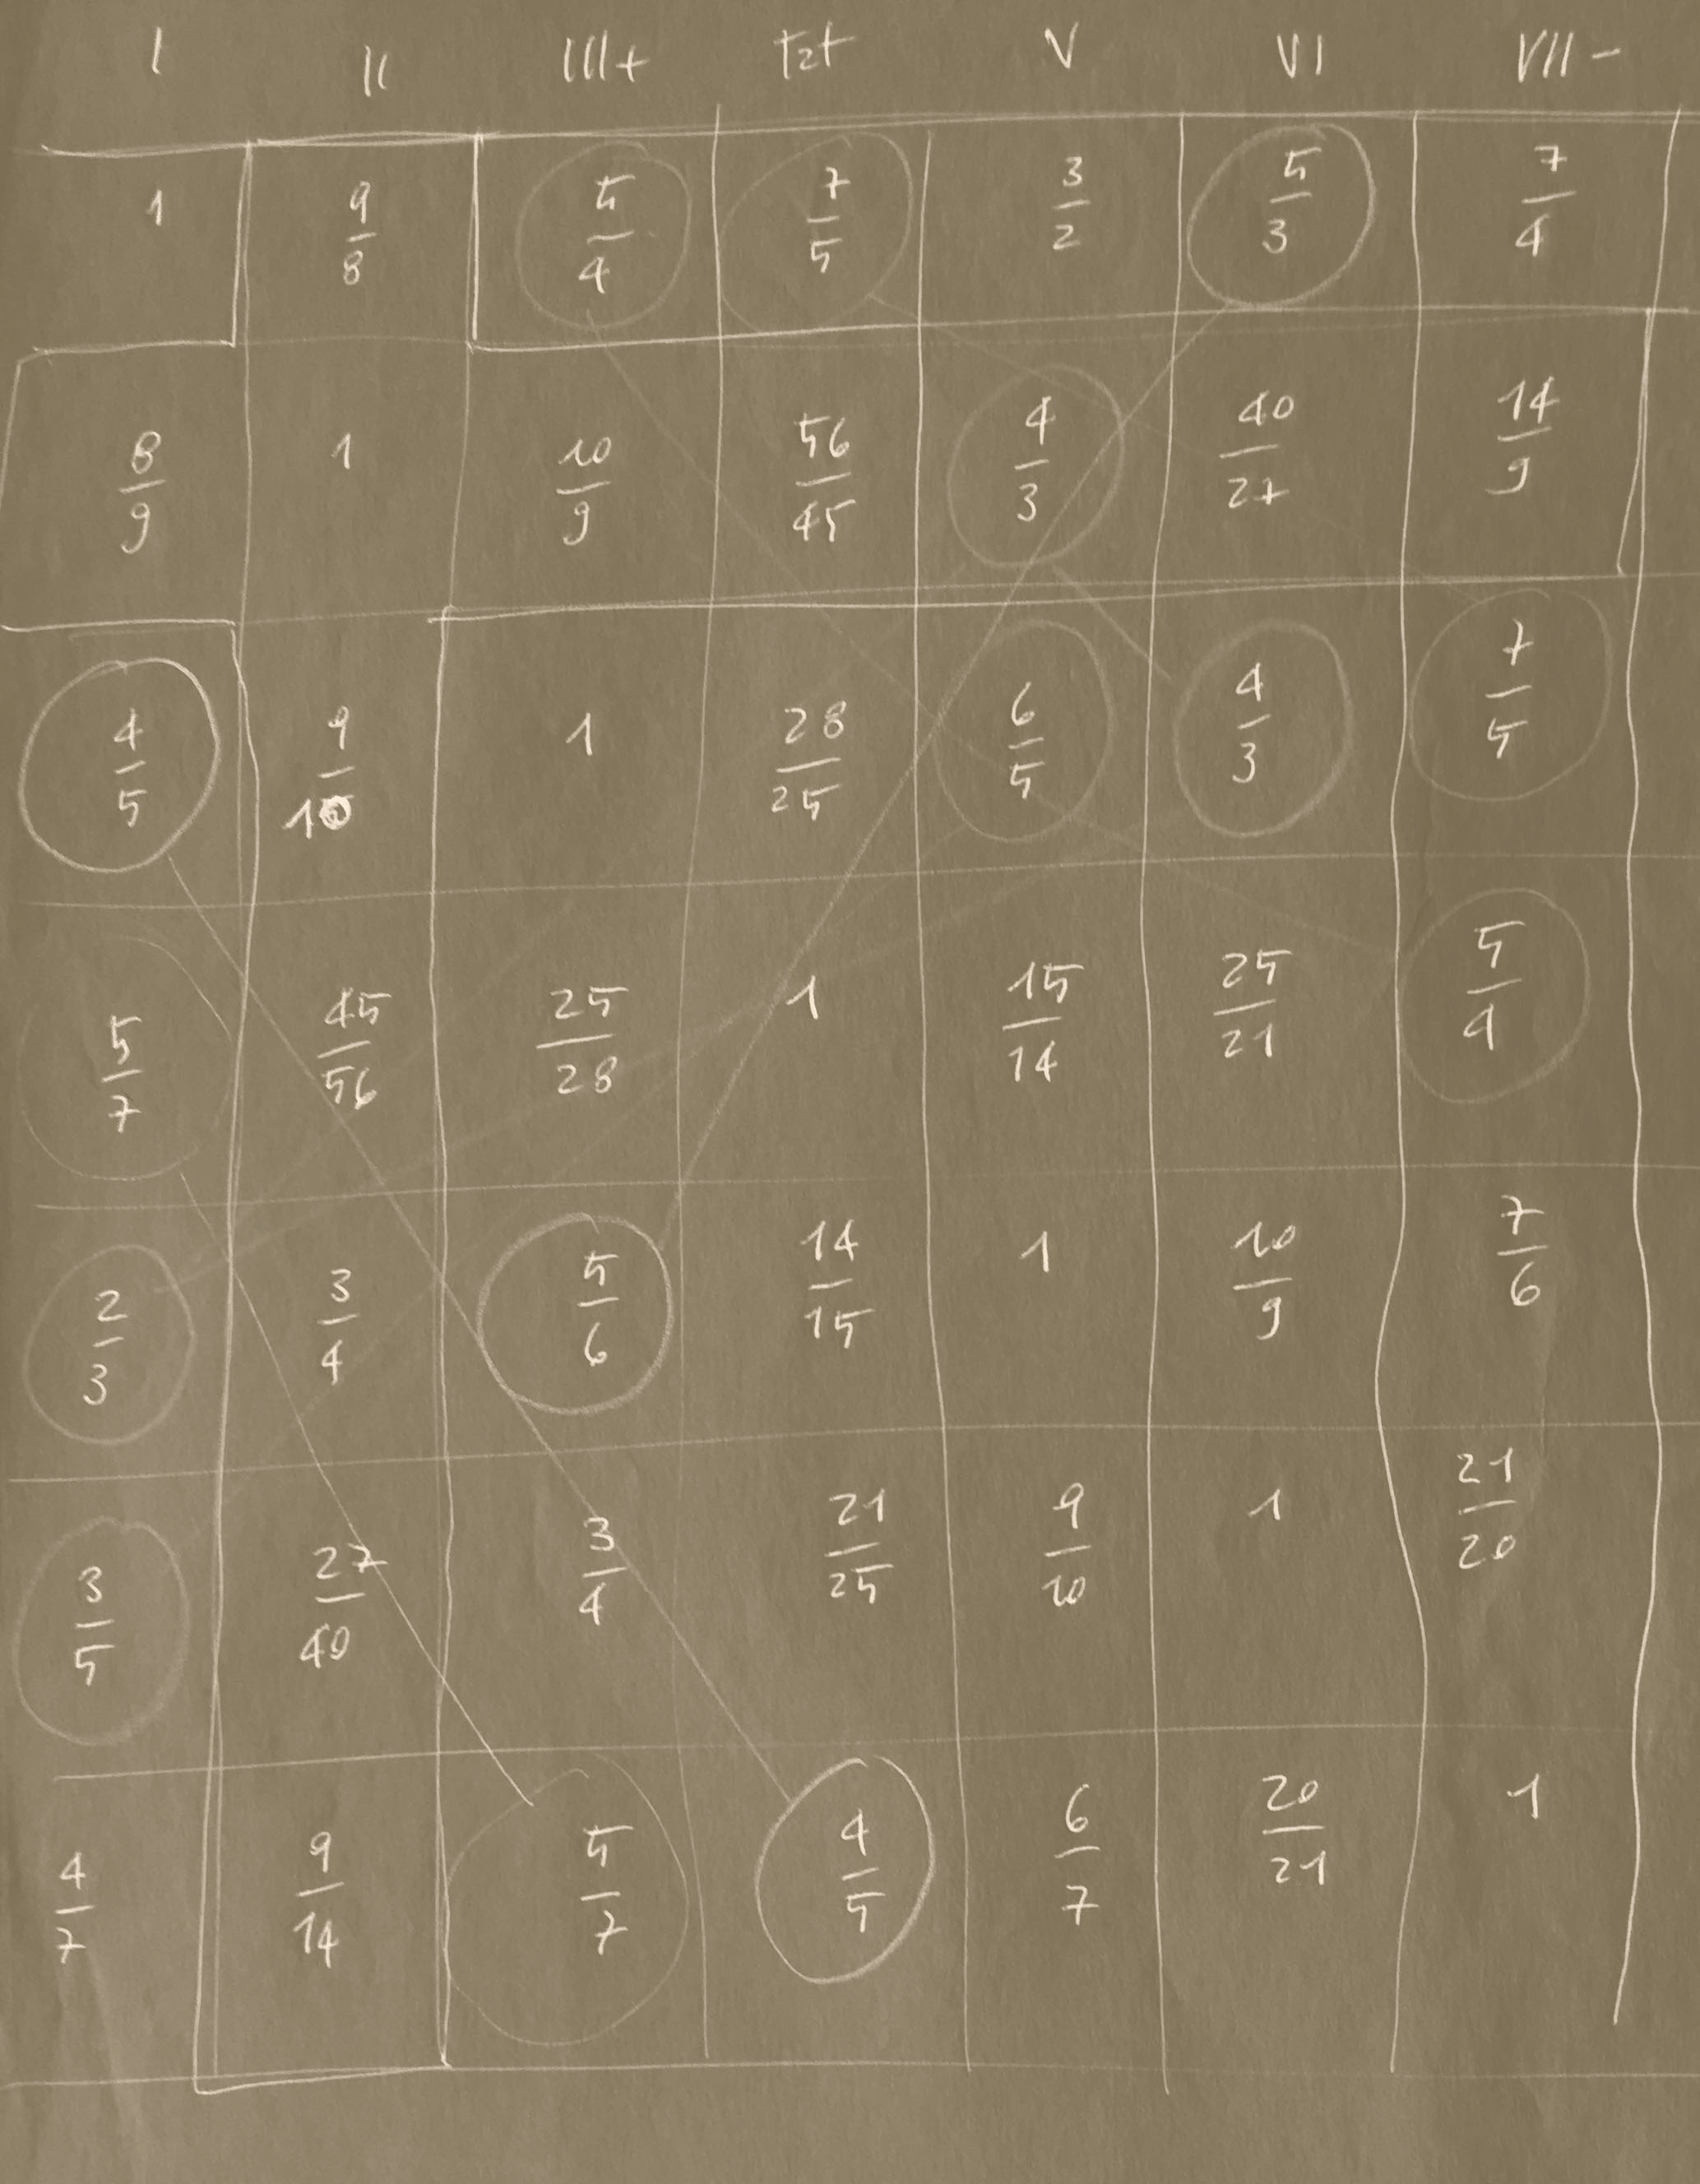 I II III+ TzT V VI VII-
1 9/8 5/4 7/5 3/2 5/3 7/4
8/9 1 10/9 56/45 4/3 40/27 14/9
4/5 9/10 1 28/25 6/5 4/3 7/5
5/7 45/56 25/28 1 15/14 25/21 5/4
2/3 3/4 5/6 14/15 1 10/9 7/6
3/5 27/40 3/4 21/25 9/10 1 21/20
4/7 9/14 5/7 4/5 6/7 20/21 1